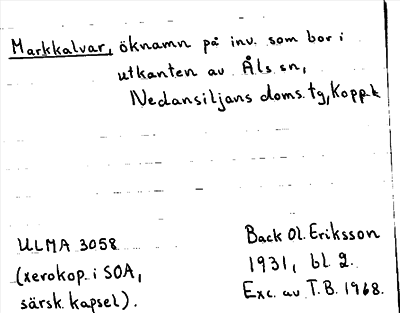 Markkalvar, öknamn på inv. som bor i
utkanten av Åls sn,
Nedansiljans doms.tg, Kopp.l.
ULMA 3058
(xerokop. i SOA,
särsk. kapsel).
Back Ol. Eriksson
1931, bl 2.
Exc. av T.B. 1968.